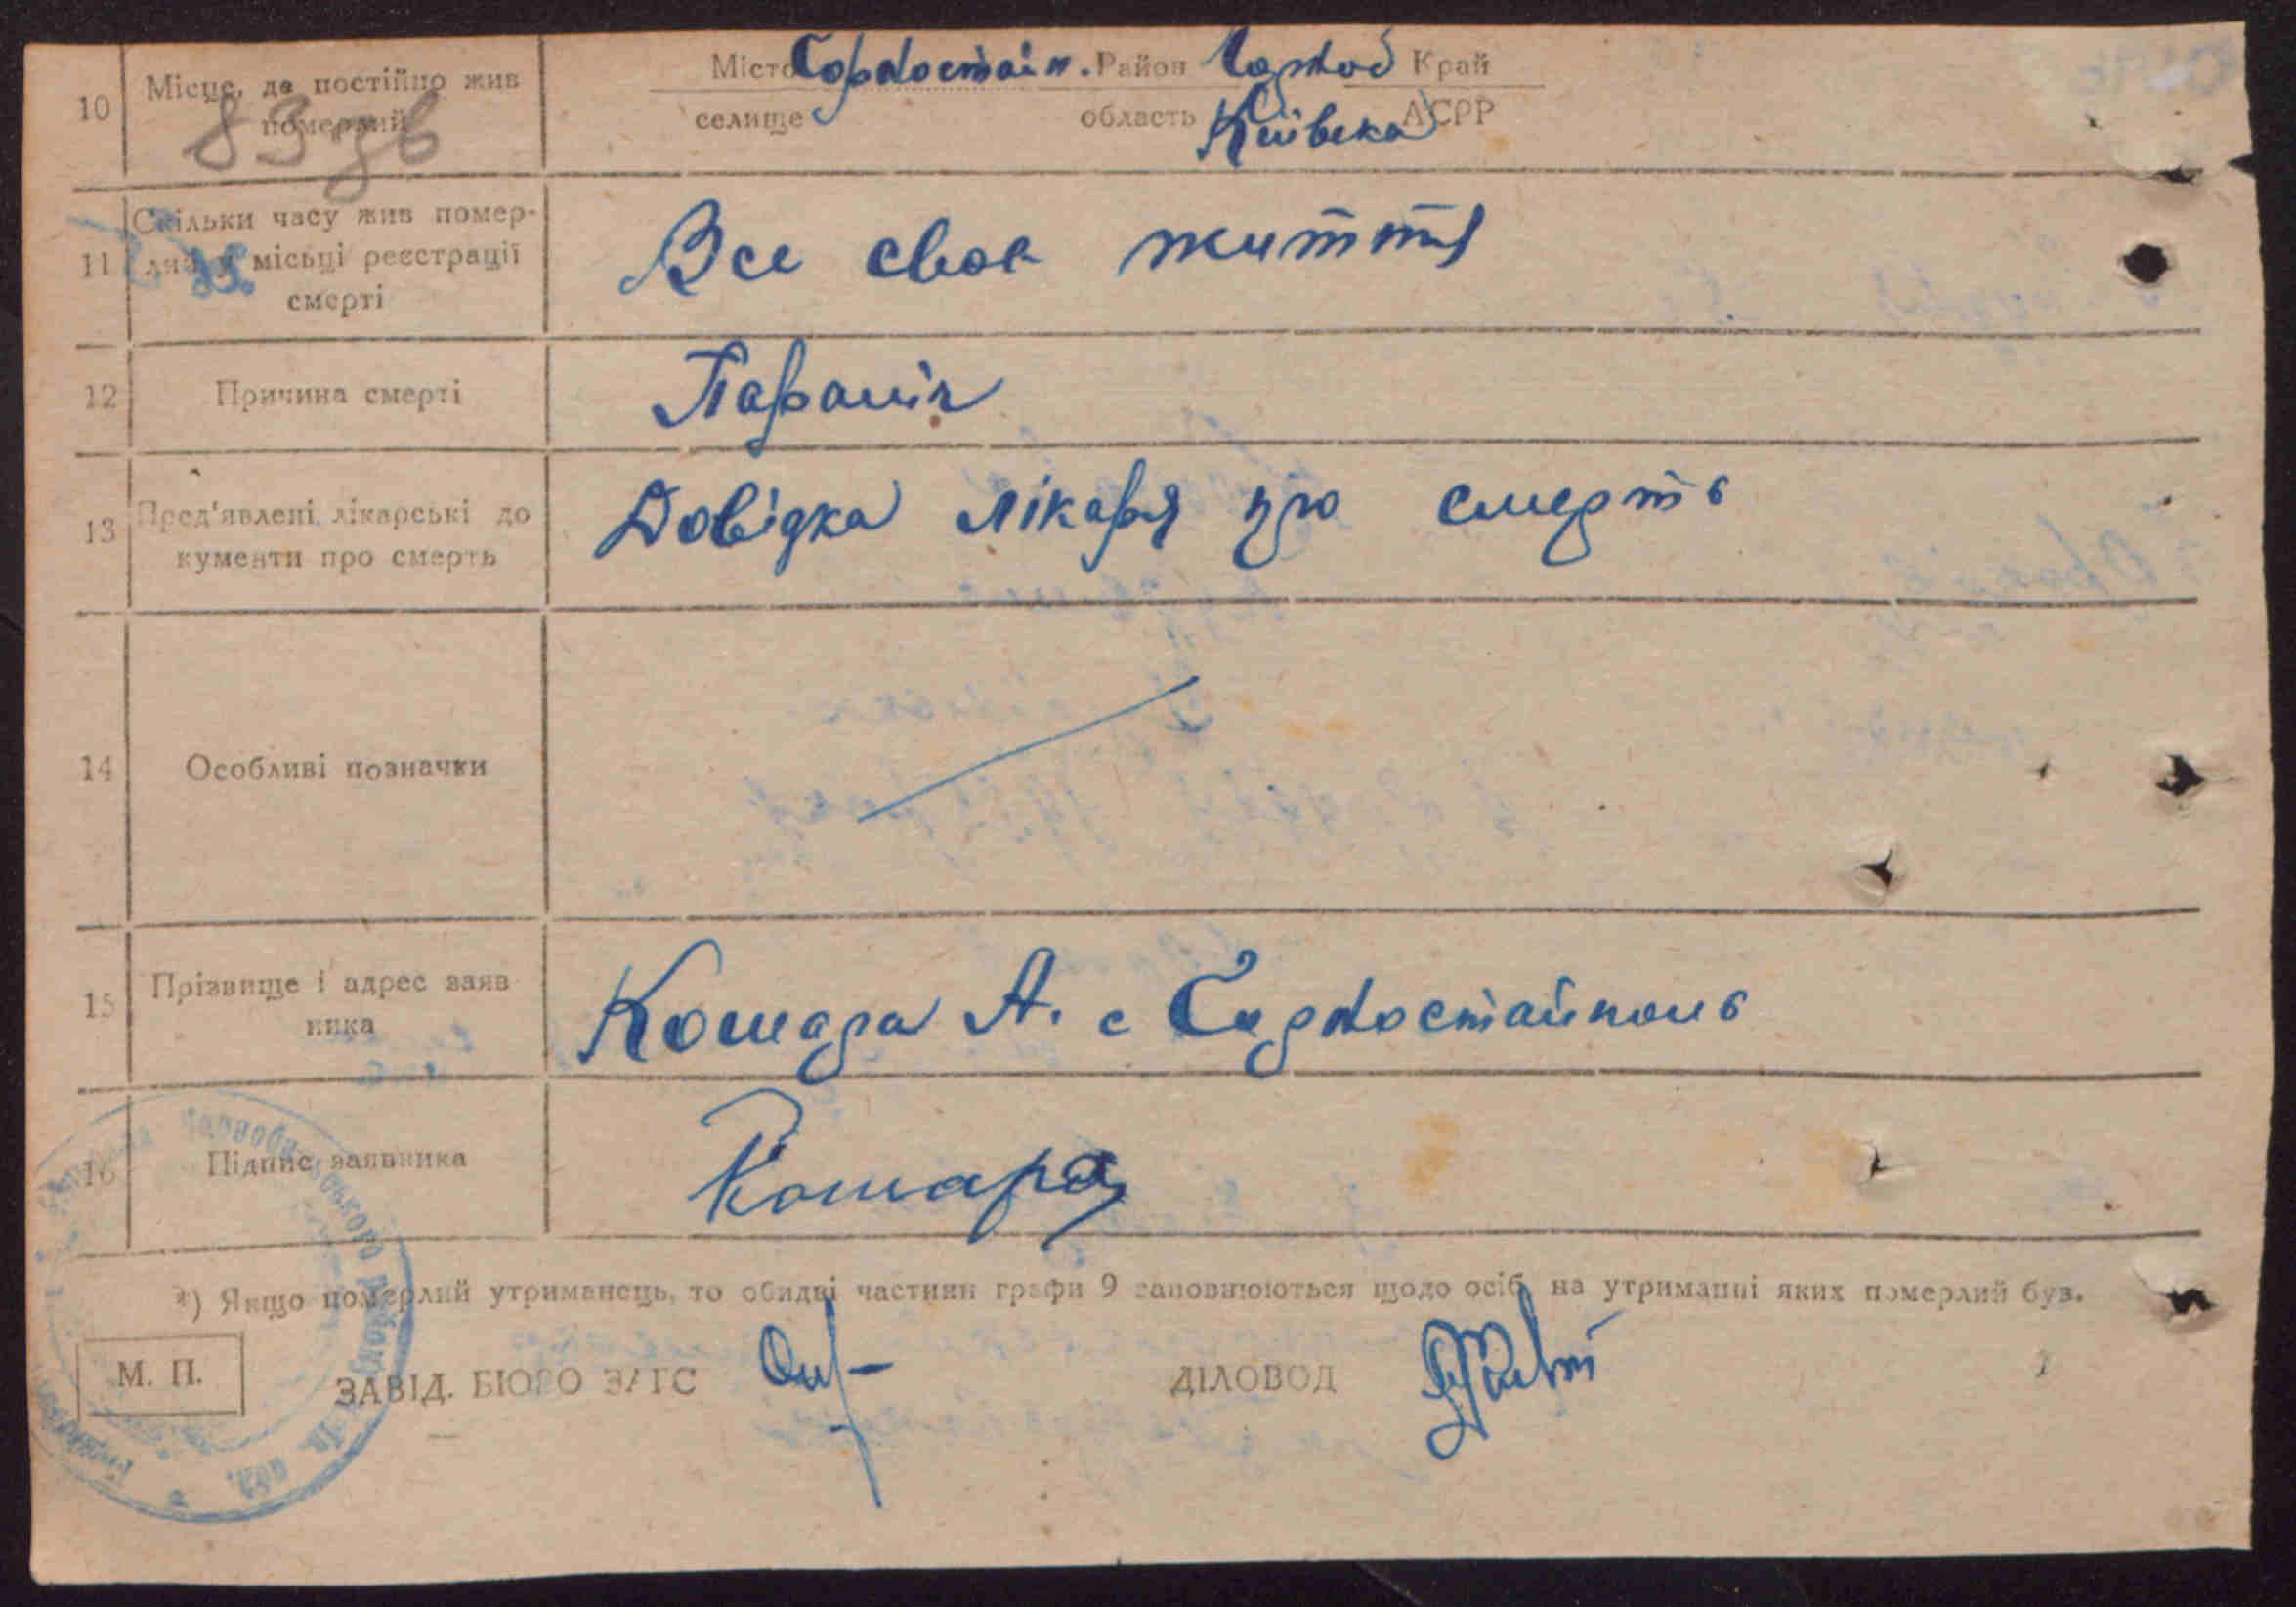 10 Місце, де постійно жив померлий
83 зв
Місто Район Край
селище область Київска АСРР
11 Скільки часу жив помер-
лий у місьці реєстрації
смерті
Все своє життя
12 Причина смерті
13 Пред'явлені лікарські до
кументи про смерть
Довідка лікаря про смерть
14 Особливі позначки
15 Прізвище і адрес заяв
ника
Кошара А. с
16 Підпис заявника
Кошара
*) Якщо померлий утриманець, то обидві частини графи 9 заповнюються щодо осіб, на утриманні яких померлий був.
М. П.
ЗАВІД. БЮРО ЗАГС ДІЛОВОД